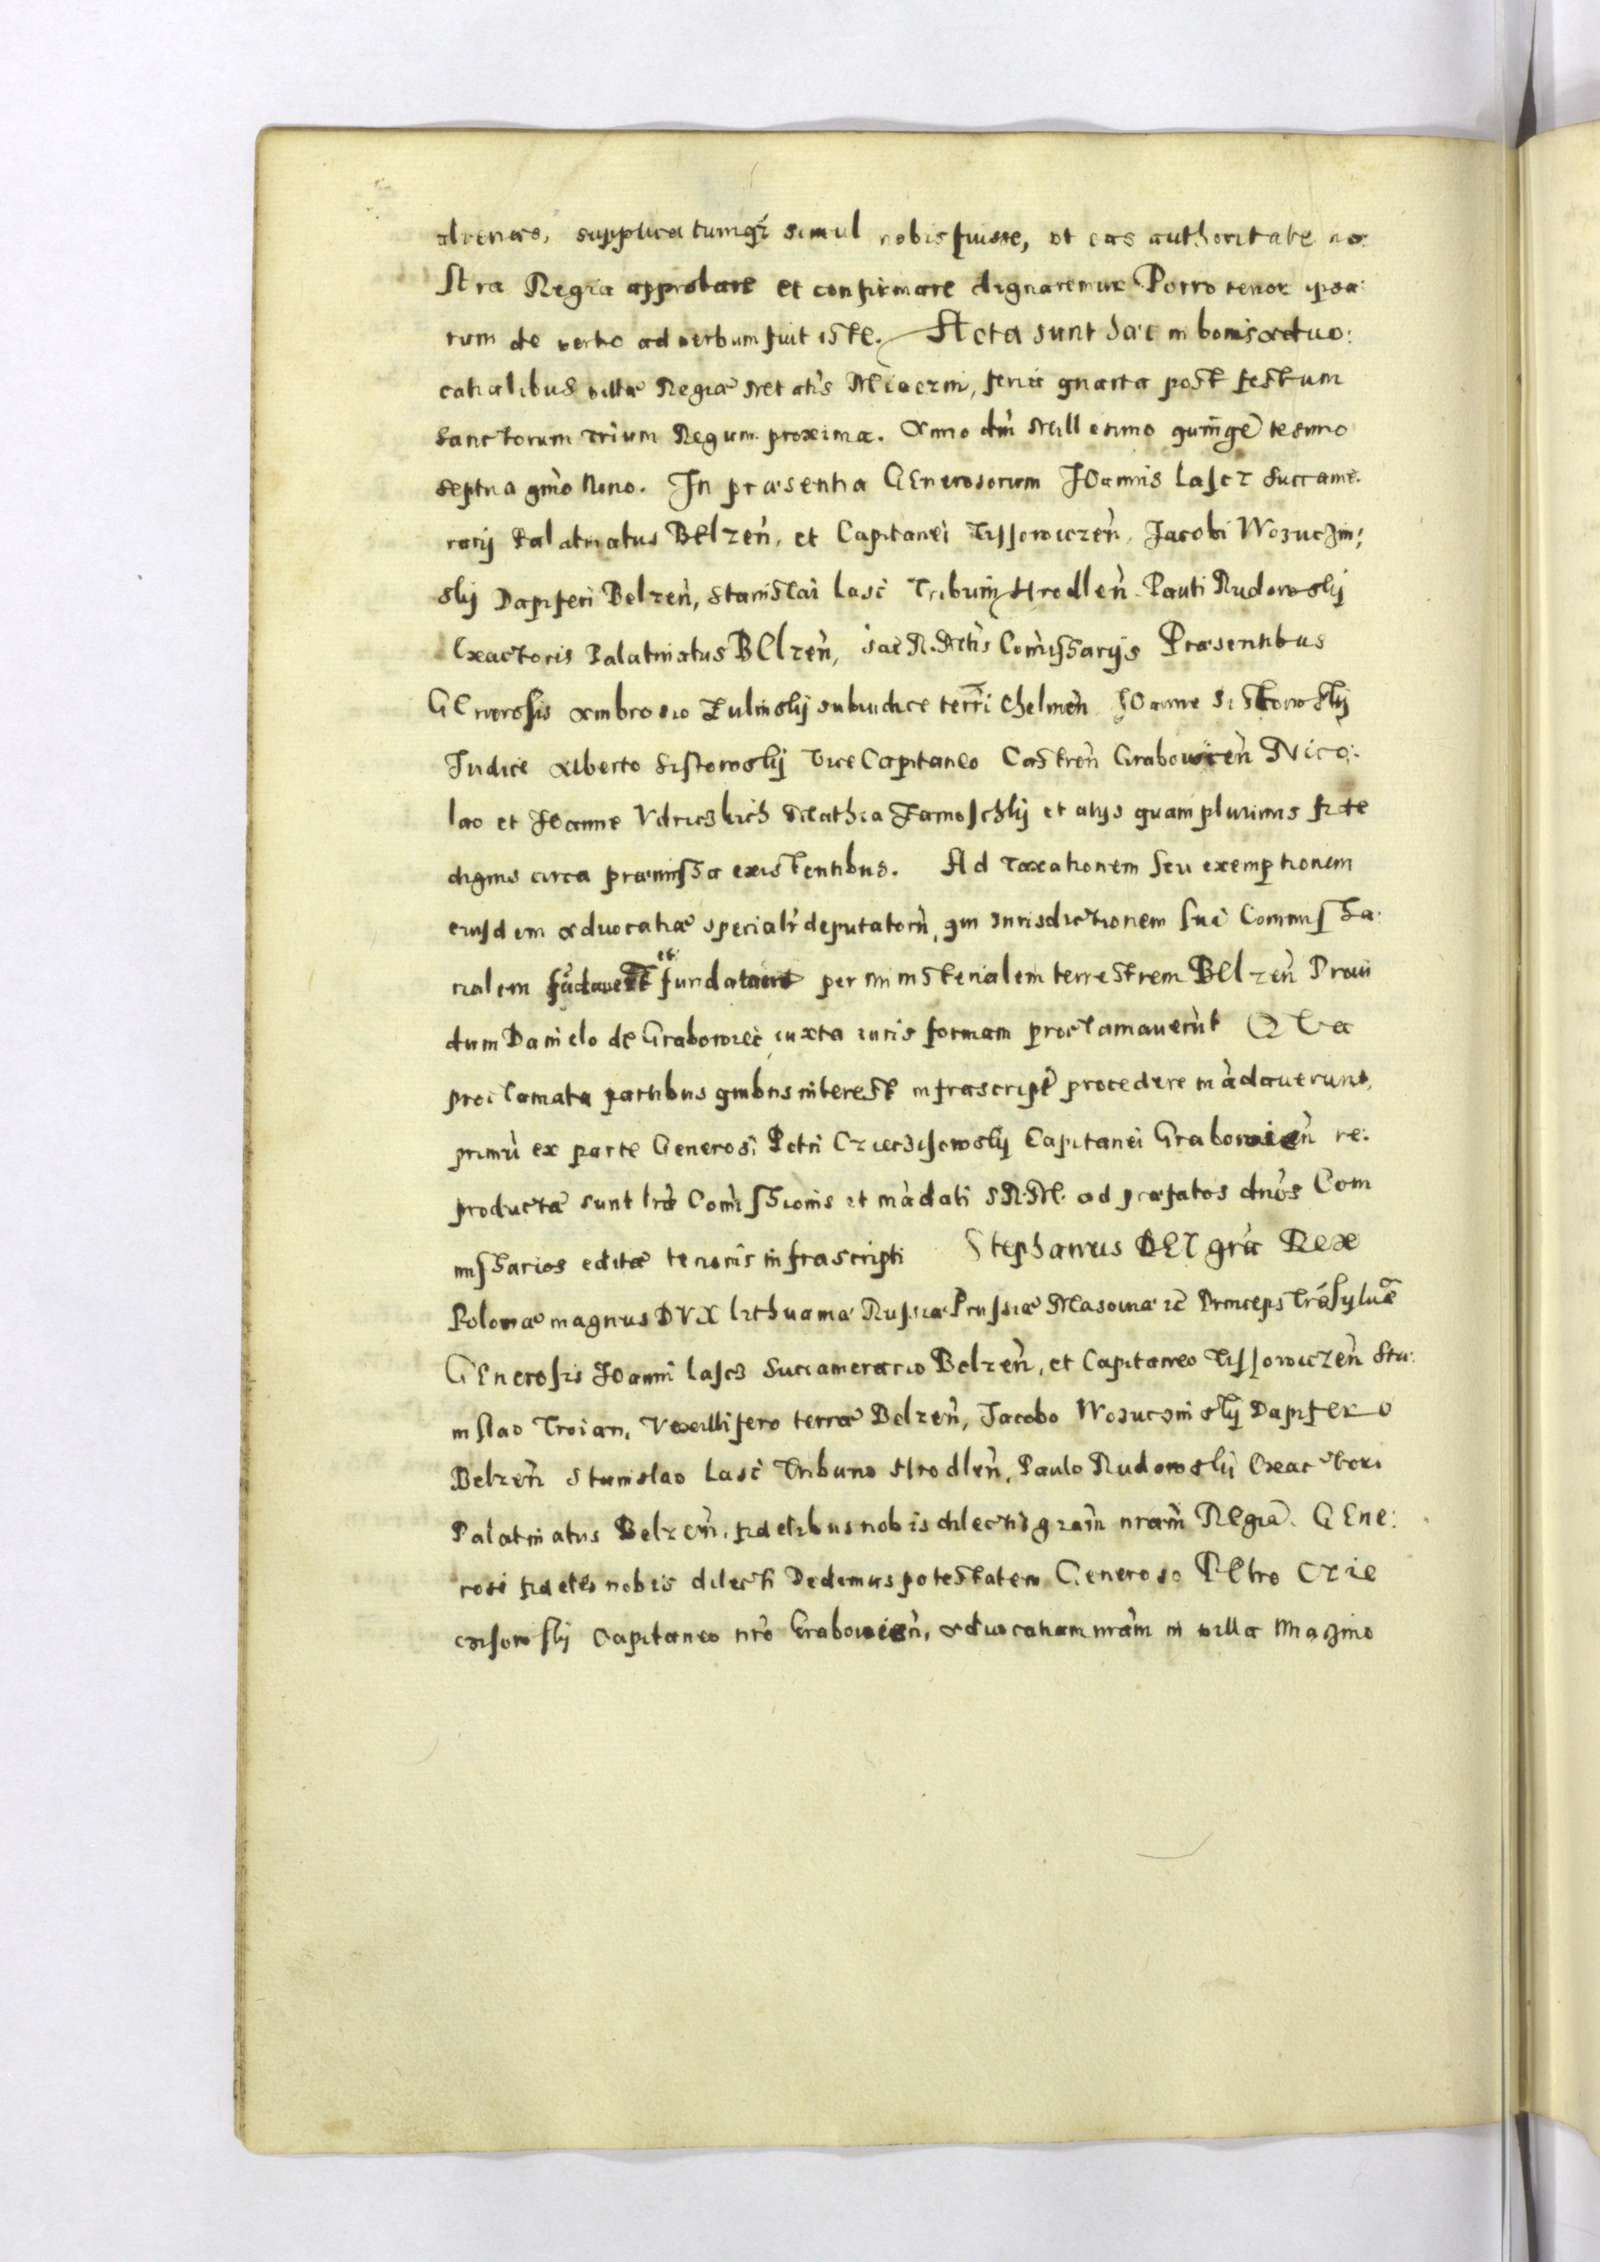 alienas, supplicatumq; simul nobis fuisse, ut eas authoritate no:
stra Regia approbare et confirmare dignaremur Porro tenor ipsa:
rum de verbo ad verbum fuit iste. Acta sunt haec in bonis advo:
catialibus villæ Regiæ Metatis, feria quarta post festum
sanctorum trium Regum proxima. Anno dni Millesimo quingētesimo
septuagmo Nono. In præsentia GEnerosorum IOannis Lascz Succame:
rarij Palatinatus BElzen̄, et Capitanei Tissowiczen̄, Jacobi Wozuczin:
skij Dapiferi Belzen̄, Stanislai Lasc Tribuni Hrodlen̄. Pauli Rudowskij
Exactoris Palatinatus BElzen̄, sae R. Mtis Com̄issarijs Præsentibus
GEnerosis Ambrosio Zulinskij subiudice terri Chelmen̄ IOanne Sistowskij
Iudice Alberto Sistowskij Vice Capitaneo Castren̄ Grabowien̄ Nico:
lao et IOanne Vdricskich Mathia Zamoschkij et alijs quam plurimis fide
dignis circa præmissa existentibus. Ad taxationem seu exemptionem
eiusdem Advocatiæ specialr deputatorū, qui Iurisdictionem sua Commissa:
rialem et fundatam per ministerialem terrestrem BElzen̄ Provi
dum Danielo de Grabowiec iuxta iuris formam proclamaverūt QVa
proclamata partibus quibus interest infrascript procedere mādaverunt,
primū ex parte Generosi Petri Czieczisowskij Capitanei Grabowien̄ re:
productæ sunt lrae Com̄issionis et mādati S.R.M. ad præfatos dnos Com
missarios editæ tenoris infrascripti Stephanus DEI gra Rex
Poloniæ magnus DVX Lithuaniæ Russiæ Prussiæ Masoviæ zc Princeps Trāsyluæ
GEnerosis IOanni Lascz Succamerario Belzen̄, et Capitaneo Tissowiczen̄ Sta:
nislao Troian, Vexillifero terræ Belzen̄, Jacobo Wozuczinskij Dapifero
Belzen̄ Stanislao Lasc Tribuno Hrodlen̄, Paulo Rudowskij Exactori
Palatinatus Belzen̄, fidelibus nobis dilectis gram nram Regiā. GEne:
rosi fideles nobis dilecti Dedimus potestatem Generoso PEtro Czie
czisowskij Capitaneo nro Grabowien̄, advocatiam nram in villa